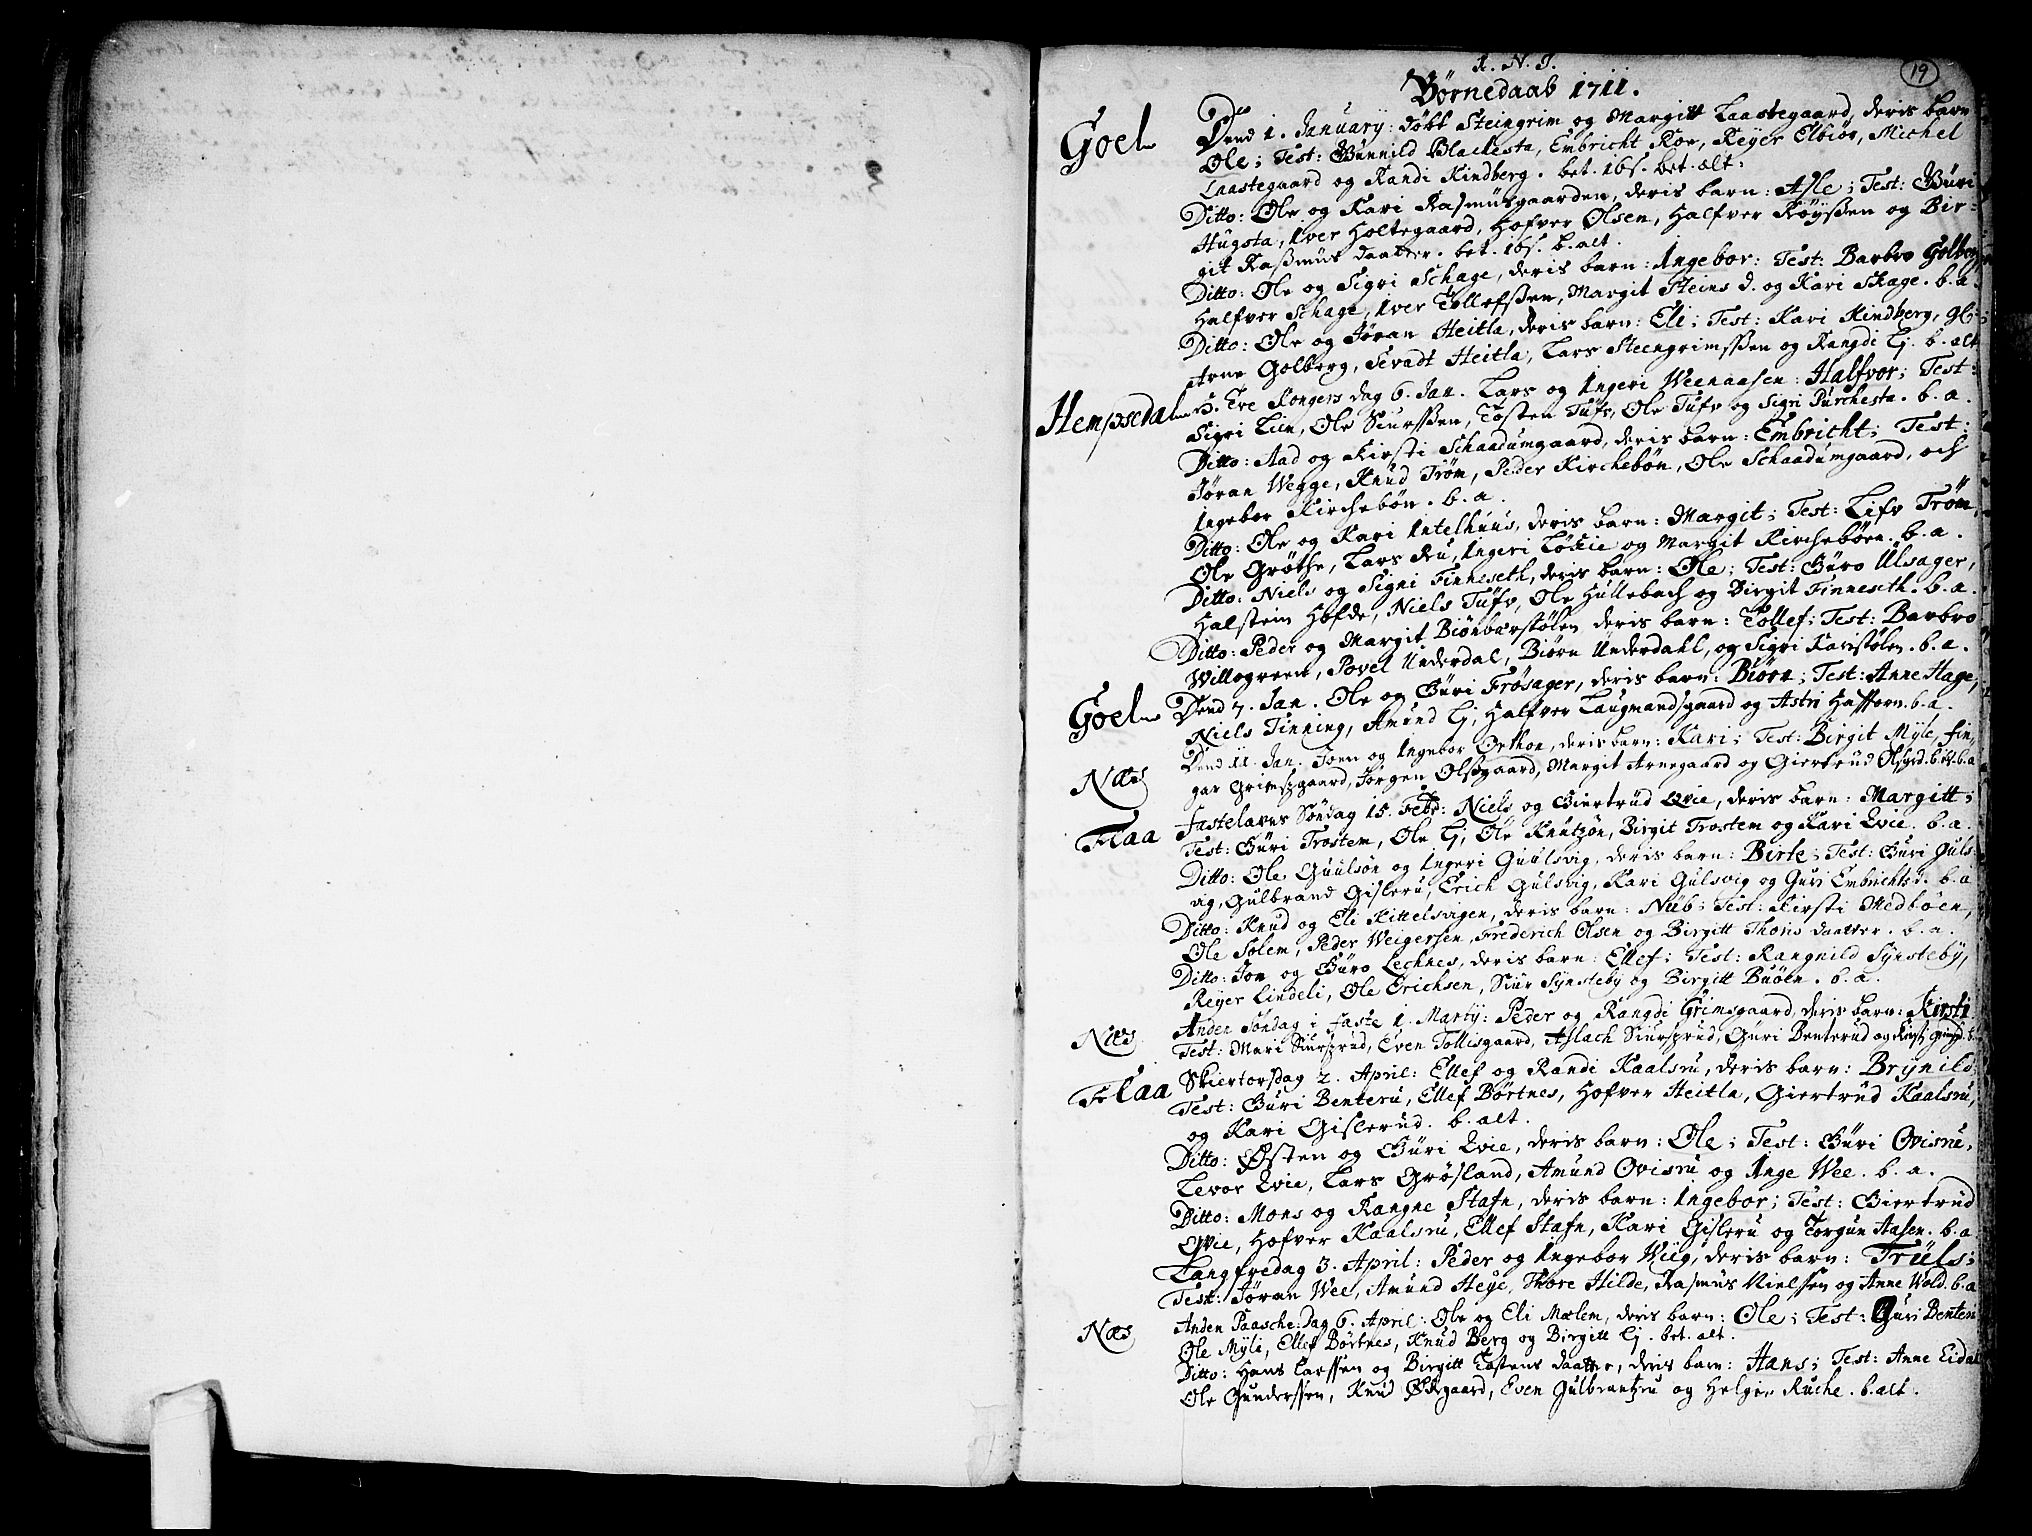 I. N. J.
19
Børnedaab 1711.
Goel Dend 1. January: døbt Steingrim og Margitt Laastegaard, deris barn
Ole; Test: Gunnild Blachesta, Embricht Roe, Reyer Elbiør, Michel
Laastegaard og Randi Kindberg. bet. 16s. bet. alt:
Ditto: Ole og Kari Rasmusgaarden, deris barn: Asle; Test: Guri
Hugsta, Iver Holtegaard, Hofver Olsen, Halfver Røyssen og Bir-
git Rasmus daatter. bet. 16s. b. alt.
Ditto: Ole og Sigri Schage, deris barn: Ingebor: Test: Barbro Golberg
Halfver Schage, Iver Tollefssen, Margit Steins d. og Kari Skage. b. a.
Ditto: Ole og Jøran Heitla, deris barn: Eli; Test: Kari Kindberg,
Arne Golberg, Sevadt Heitla, Lars Steengrimssen og Rangdi Ej. b. alt
Hempsedal H. Tre Kongers dag 6. Jan. Lars og Ingeri Weenaasen: Halfvor; Test:
Sigri Lien, Ole Siurssen, Tosten Tufv, Ole Tufv og Sigri Purchesta. b. a.
Ditto: Aad og Kirsti Schaadumgaard, deris barn: Embricht; Test:
Jøran Wegge, Knud Trøm, Peder Kirchebøn, Ole Schaadumgaard, och
Ingebor Kirchebøn. b. a.
Ditto: Ole og Kari Intelhuus, deris barn: Margit; Test: Lifv Trøm,
Ole Grøthe, Lars Ru, Ingeri Løkie og Margit Kirchebøen. b. a.
Ditto: Niels og Sigri Finneseth, deris barn: Ole; Test: Guro Ulsager,
Halstein Hofde, Niels Tufv, Ole Hullebach og Birgit Finneseth. b. a.
Ditto: Peder og Margit Biønbærstølen deris barn: Tollef; Test: Barbro
Willogreen, Povel Underdal, Biørn Underdahl, og Sigri Karistølen. b. a.
Goel Dend 7. Jan. Ole og Guri Frøsager, deris barn: Biørn; Test: Anne Hage,
Niels Tinning, Amund Ej, Halfver Laugmandsgaard og Astri Haftorn. b. a.
Næs Dend 11. Jan. Joen og Ingebor Orthon, deris barn: Kari; Test: Birgit Myle, Fin,
gar Grimszgaard, Jørgen Olsgaard, Margit Arnegaard og Giertrud
Flaa Fastelavns Søndag 15. Febr: Niels og Giertrud Qvie, deris barn: Margitt;
Test: Guri Trostem, Ole Ej, Ole Knutzøn, Birgit Trostem og Kari Qvie. b. a.
Ditto: Ole Guulsøn og Ingeri Guulsvig, deris barn: Birte; Test: Guri Guls-
vig, Gulbrand Gisleru, Erich Gulsvig, Kari Gulsvig og Guri Embrichts d. b. a
Ditto: Knud og Eli Kittelsvigen, deris barn: Nub; Test: Kirsti Medbøen,
Ole Solem, Peder Weigersen, Frederich Olsen og Birgitt Thoris daatter. b. a.
Ditto: Jon og Guro Lechnes, deris barn: Ellef; Test: Rangnild Synsteby,
Reyer Lindeli, Ole Erichsen, Siur Synsteby og Birgitt Buøen. b. a.
Næs Anden Søndag i Faste 1. Martij: Peder og Rangdi Grimsgaard, deris barn: Kirsti
Test: Mari Siursrud, Even Tollisgaard, Aslach Siursrud, Guri Benterud og Kirsti
Flaa Skiertorsdag 2. April: Ellef og Randi Kaalsru, deris barn: Brynild;
Test: Guri Benteru, Ellef Børtnes, Hofver Heitla, Giertrud Kaalsru,
og Kari Gislerud. b. alt.
Ditto: Østen og Guri Qvie, deris barn: Ole; Test: Guri Ovisru,
Levor Qvie, Lars Grøsland, Amund Ovisru og Inge Wee. b. a.
Ditto: Mons og Rangne Stafn, deris barn: Ingebor; Test: Giertrud
Qvie, Hofver Kaalsru, Ellef Stafn, Kari Gisleru og Torgun Aasen. b. a
Langfredag 3. April: Peder og Ingebor Wiig, deris barn: Truls;
Test: Jøran Wee, Amund Heye, Thore Hilde, Rasmus Nielssen og Anne Wold b. a
Næs Anden Paasche: Dag 6. April: Ole og Eli Mælem, deris barn: Ole; Test: Guri Benteru
Ole Myle, Ellef Børtnes, Knud Berg og Birgitt Ej. bet. alt.
Ditto: Hans Larssen og Birgitt Tostens daatter, deris barn: Hans; Test: Anne Eidal
Ole Gunderssen, Knud Ødegaard, Even Gulbrantzru og Helge Ruche. b. alt.